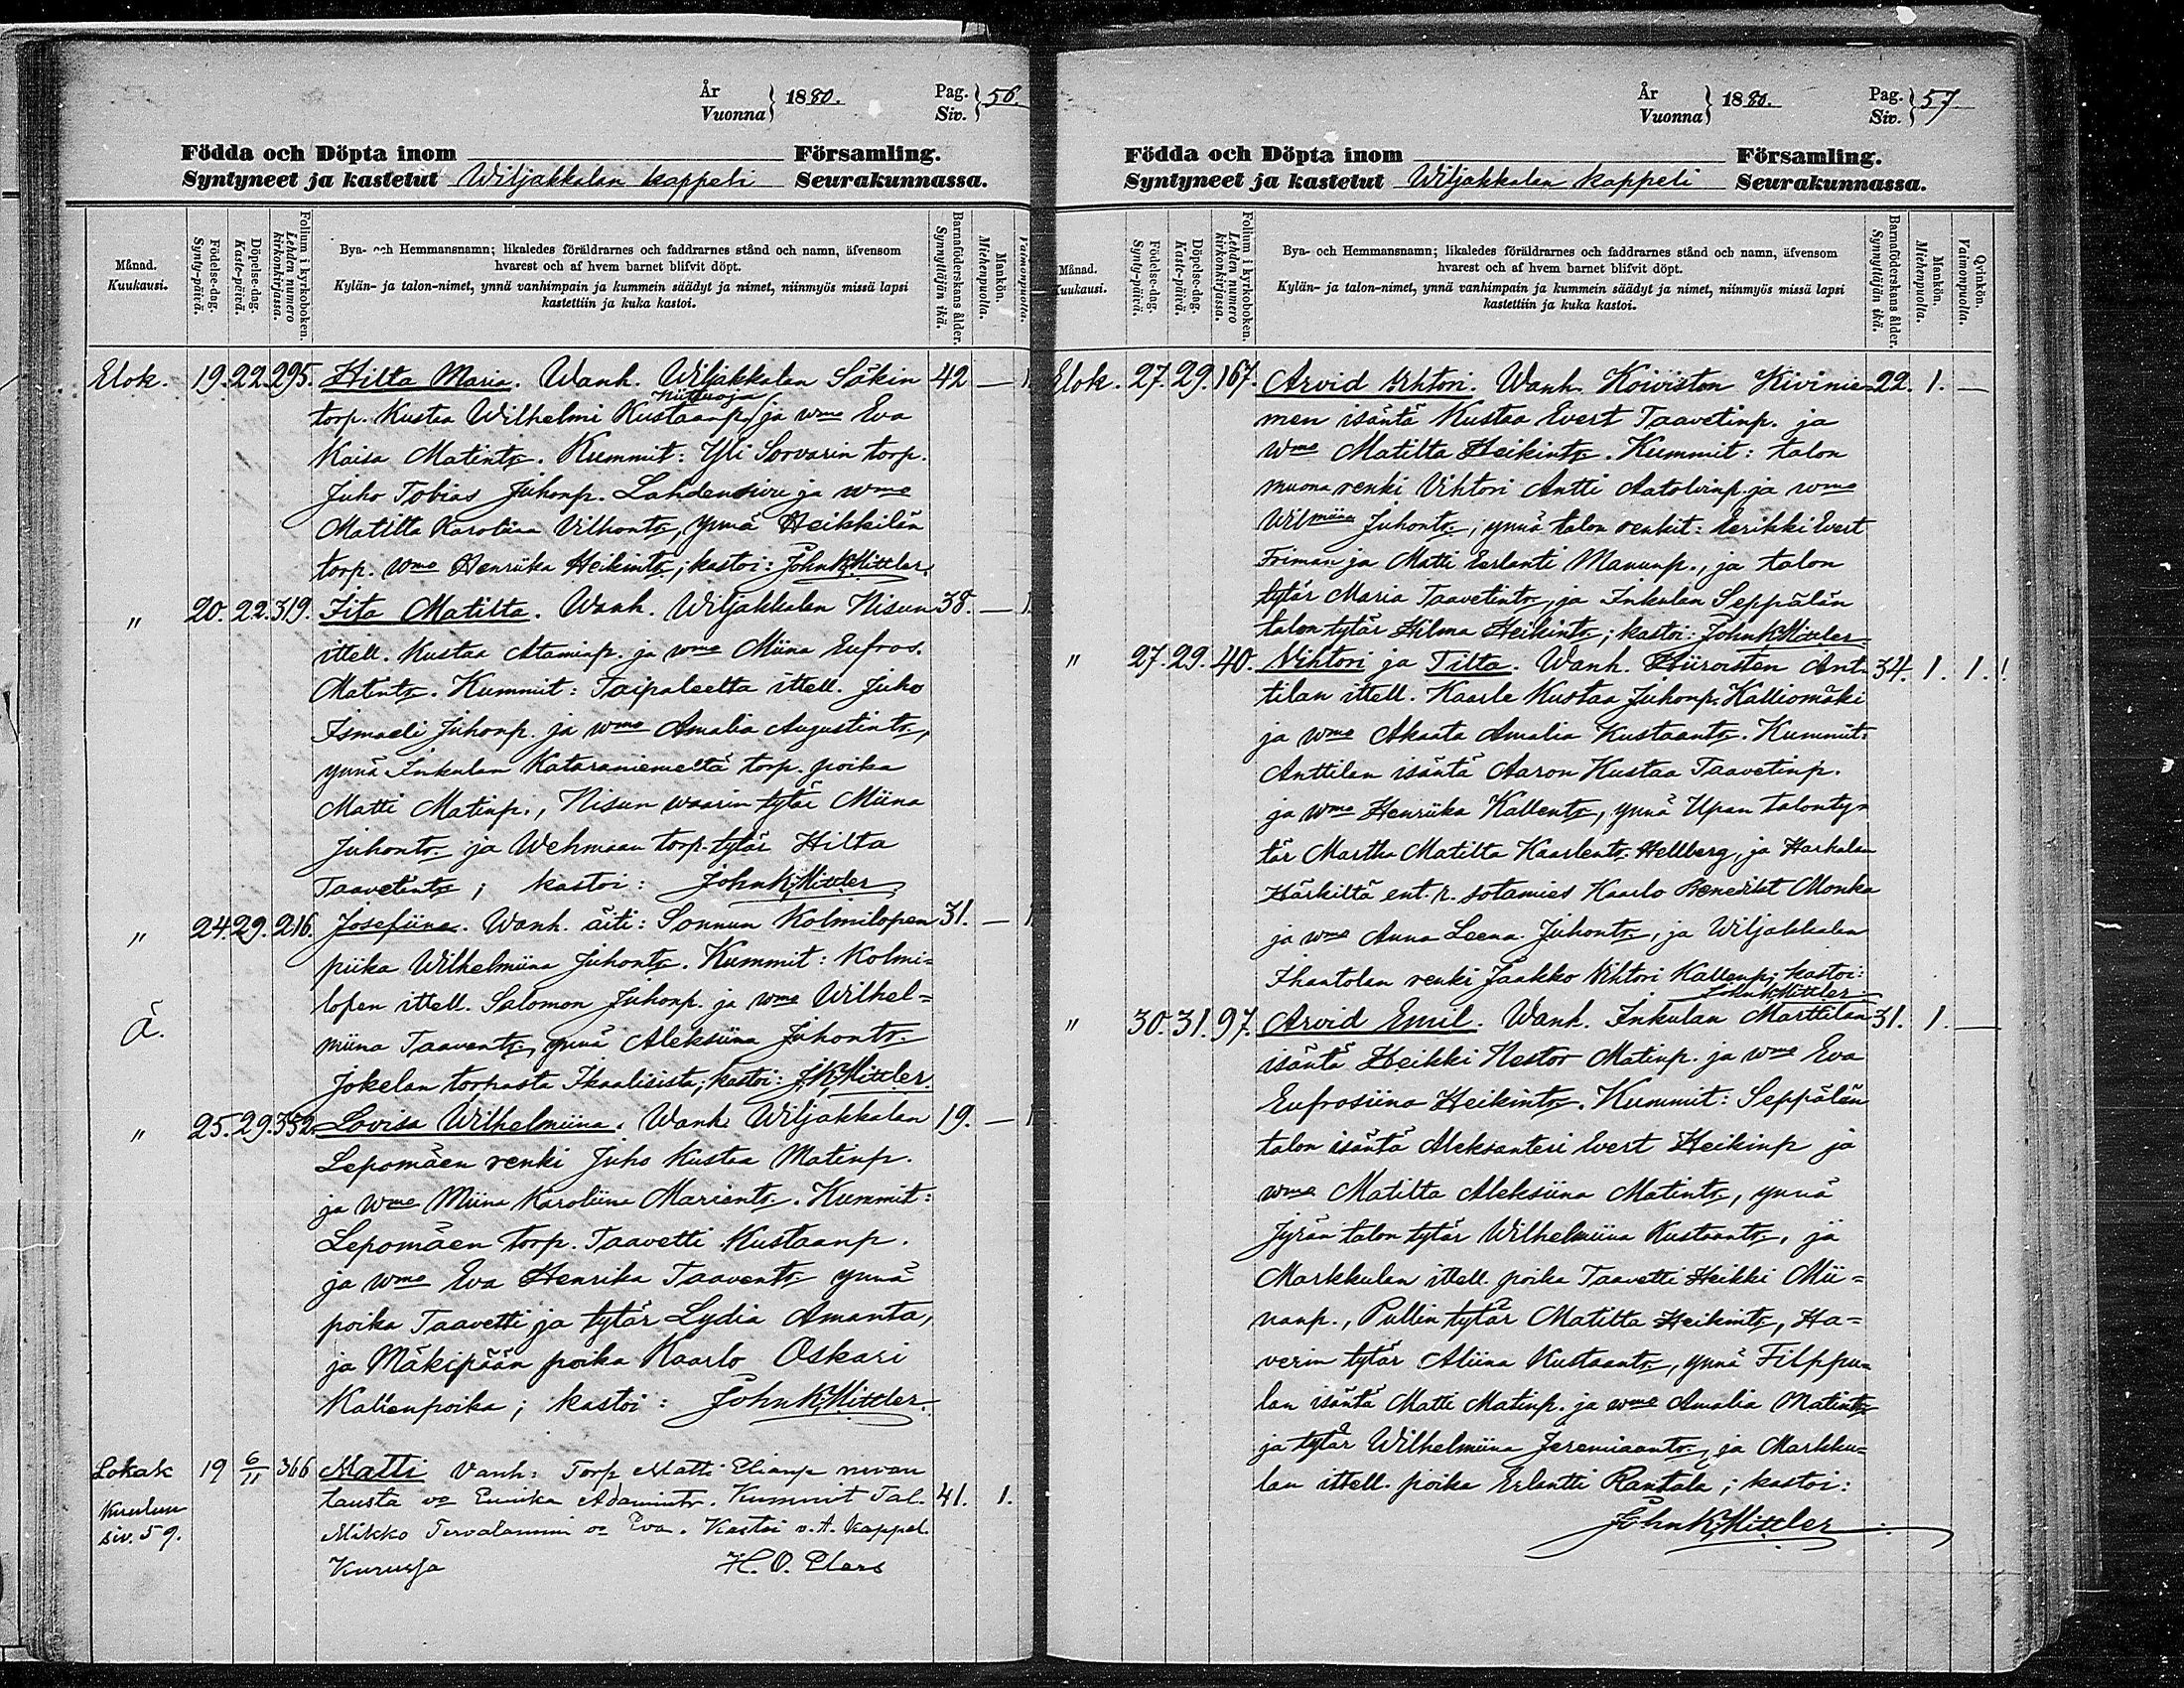 År
Vuonna } 1880.
Pag.
Siv. } 56.
Födda och Döpta inom Församling.
Syntyneet ja kastetut Wiljakkalan kappeli Seurakunnassa.
Månad.
Kuukausi.
Födelse-dag.
Synty-päivä.
Döpelse-dag.
Kaste-päivä.
Folium i kyrkoboken.
Lehden numero kirkonkirjassa.
Bya- och Hemmansnamn; likaledes föräldrarnes och faddrarnes stånd och namn, äfvensom
hvarest och af hvem barnet blifvit döpt.
Kylän- ja talon-nimet, ynnä vanhimpain ja kummein säädyt ja nimet, niinmyös missä lapsi
kastettiin ja kuka kastoi.
Barnaföderskans ålder.
Synnyttäjän ikä.
Mankön.
Miehenpuolia.
Vaimonpuolia.
Elok. 19. 22. 295. Hilta Maria. Wanh. Wiljakkalan Säkin 42 — 1
torp. Kustaa Wilhelmi Kustaanp. ja wmo Eva
Kaisa Matintr. Kummit: Yli Sorvarin torp.
Juho Tobias Juhonp. Lahdensivu ja wmo
Matilta Karoliina Vilhontr, ynnä Heikkilän
torp. wmo Henriika Heikintr; kastoi: John K. Mittler.
" 20. 22. 319. Iita Matilta. Wanh. Wiljakkalan Nisun 38. — 1.
ittell. Kustaa Ataminp. ja wmo Miina Eufros.
Matintr. Kummit: Taipaleelta ittell. Juho
Ismaeli Juhonp. ja wmo Amalia Augustintr,
ynnä Inkulan Kataraniemeltä torp. poika
Matti Matinp., Nisun waarin tytär Miina
Juhontr ja Wehmaan torp. tytär Hilta
Taavetintr; kastoi: John K. Mittler
" 24. 29. 216. Josefiina. Wanh. äiti: Sonnun Kolmilopen 31. — 1
piika Wilhelmiina Juhontr. Kummit: Kolmi=
lopen ittell. Salomon Juhonp. ja wmo Wilhel=
Ä. miina Taaventr, ynnä Aleksiina Juhontr
Jokelan torpasta Ikaalisista; kastoi: J. K. Mittler.
" 25. 29. 352. Lovisa Wilhelmiina. Wanh. Wiljakkalan 19. — 1
Lepomäen renki Juho Kustaa Matinp.
ja wmo Miina Karoliina Marientr. Kummit:
Lepomäen torp. Taavetti Kustaanp.
ja wmo Eva Henrika Taaventr ynnä
poika Taavetti ja tytär Lydia Amanta,
ja Mäkipään poika Kaarlo Oskari
Kallenpoika; kastoi: John K. Mittler.
Lokak 19 6/11 366 Matti Vanh: Torp Matti Elianp nevan
Kuuluu tausta vo Eenika Adamintr. Kummit Tal. 41. 1.
siv. 59. Mikko Tervalammi vo Eva. Kastoi v. A. kappel.
Kurussa H. O. Elers
År
Vuonna } 1880.
Pag.
Siv. } 57
Födda och Döpta inom Församling.
Syntyneet ja kastetut Wiljakkalan kappeli Seurakunnassa.
Månad.
Kuukausi.
Födelse-dag.
Synty-päivä.
Döpelse-dag.
Kaste-päivä.
Folium i kyrkoboken.
Lehden numero kirkonkirjassa.
Bya- och Hemmansnamn; likaledes föräldrarnes och faddrarnes stånd och namn, äfvensom
hvarest och af hvem barnet blifvit döpt.
Kylän- ja talon-nimet, ynnä vanhimpain ja kummein säädyt ja nimet, niinmyös missä lapsi
kastettiin ja kuka kastoi.
Barnaföderskans ålder.
Synnyttäjän ikä.
Mankön.
Miehenpuolia.
Qvinkön.
Vaimonpuolia.
Elok. 27. 29. 167. Arvid Vihtori. Wanh. Koiviston Kivinie= 22. 1. —
men isäntä Kustaa Evert Taavetinp. ja
wmo Matilta Heikintr. Kummit: talon
muona renki Vihtori Antti Aatolvinp. ja wmo
Wilmiina Juhontr, ynnä talon renkit: Eerikki Evert
Friman ja Matti Eerlanti Manunp., ja talon
tytär Maria Taavetintr, ja Inkulan Seppälän
talon tytär Hilma Heikintr; kastoi: John K. Mittler
" 27. 29. 40. Vihtori ja Tilta. Wanh. Hiiroisten Ant= 34. 1. 1. !
tilan ittell. Kaarle Kustaa Juhonp. Kalliomäki
ja wmo Akaata Amalia Kustaantr. Kummit:
Anttilan isäntä Aaron Kustaa Taavetinp.
ja wmo Henriika Kallentr, ynnä Upan talonty=
tär Martha Matilta Kaarlentr Hellberg, ja Harhalan
Härkiltä ent. r. sotamies Kaarlo Benedikt Monka
ja wmo Anna Leena Juhontr, ja Wiljakkalan
Ihantolan renki Jaakko Vihtori Kallenp; kastoi:
John K. Mittler.
" 30. 31. 97. Arvid Emil. Wanh. Inkulan Marttilan 31. 1. —
isäntä Heikki Nestor Matinp. ja wmo Eva
Eufrosiina Heikintr. Kummit: Seppälän
talon isäntä Aleksanteri Evert Heikinp ja
wmo Matilta Aleksiina Matintr, ynnä
Jyrän talon tytär Wilhelmiina Kustaantr, ja
Markkulan ittell. poika Taavetti Heikki Mii=
nanp., Pullin tytär Matilta Heikintr, Ha=
verin tytär Aliina Kustaantr, ynnä Filppu=
lan isäntä Matti Matinp. ja wmo Amalia Matintr
ja tytär Wilhelmiina Jeremiaantr, ja Markku=
lan ittell. poika Erlantti Rantala; kastoi:
John K. Mittler